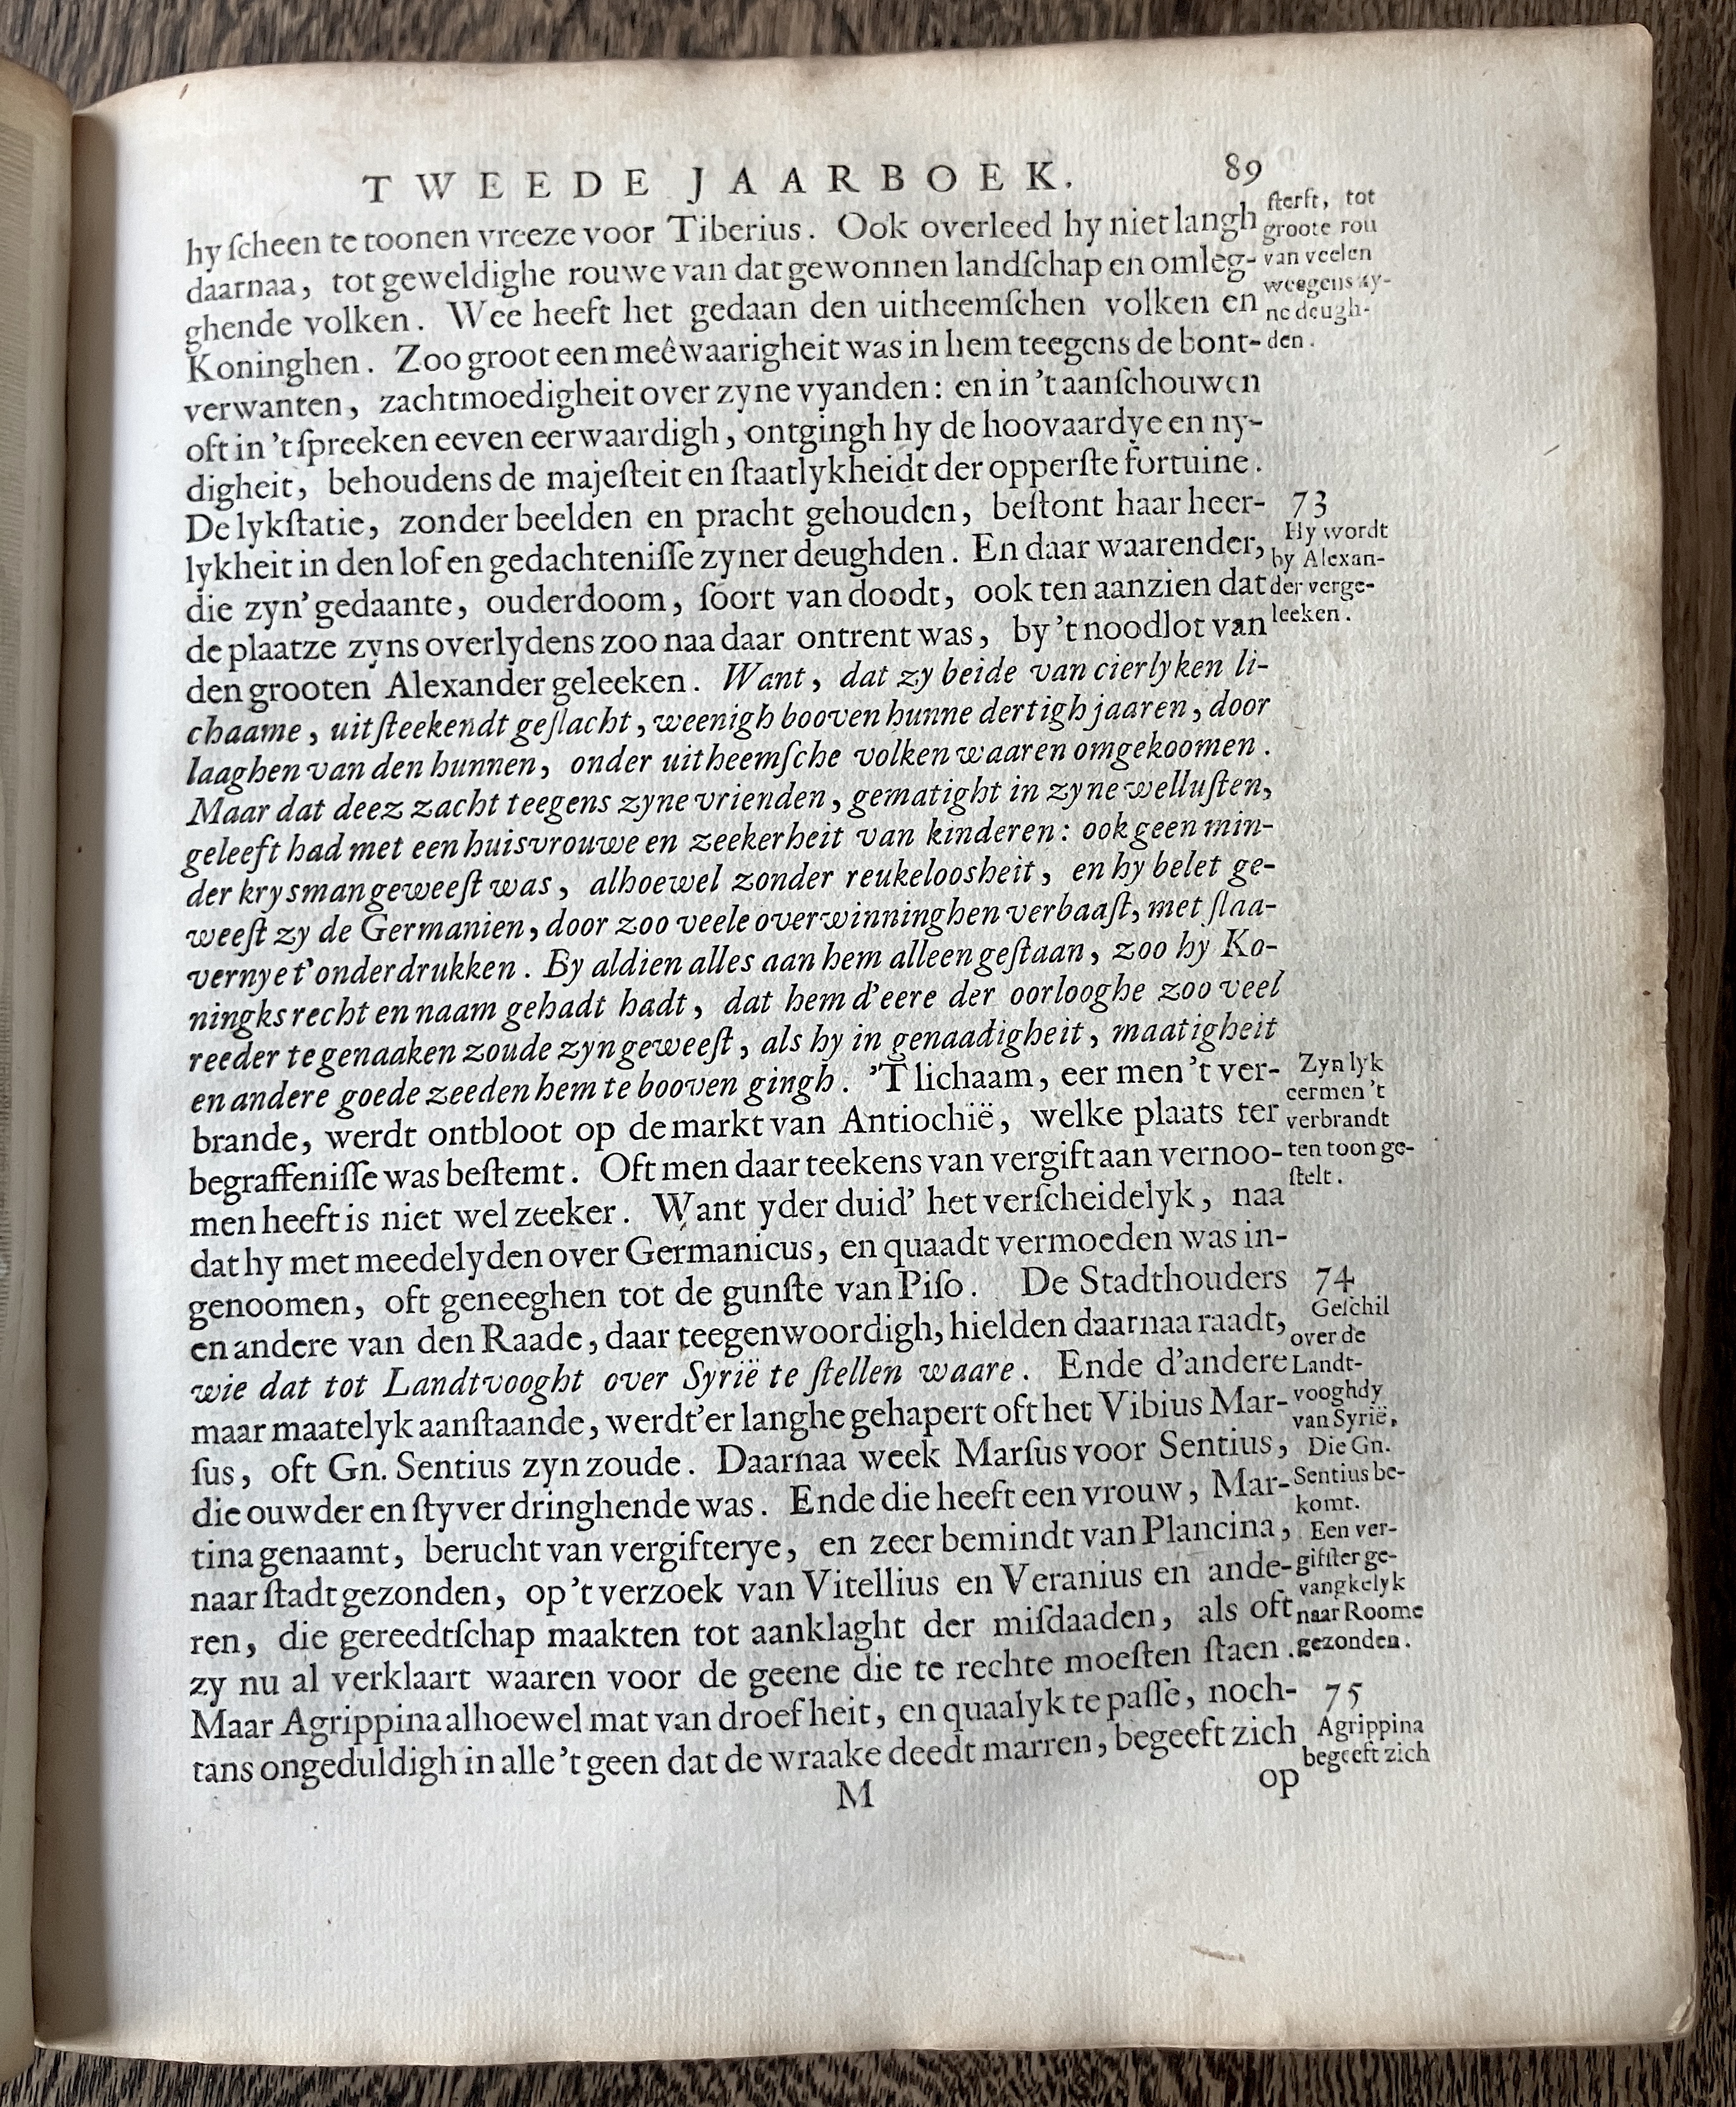 TWEEDE JAARBOEK. 89
hy ſcheen te toonen vreeze voor Tiberius. Ook overleed hy niet langh
daarnaa, tot geweldighe rouwe van dat gewonnen landſchap en omleg-
ghende volken. Wee heeft het gedaan den uitheemſchen volken en
Koninghen. Zoo groot een meêwaarigheit was in hem teegens de bont-
verwanten, zachtmoedigheit over zyne vyanden: en in 't aanſchouwen
oft in 't ſpreeken eeven eerwaardigh, ontgingh hy de hoovaardye en ny-
digheit, behoudens de majeſteit en ſtaatlykheidt der opperſte fortuine.
De lykſtatie, zonder beelden en pracht gehouden, beſtont haar heer-
lykheit in den lof en gedachteniſſe zyner deughden. En daar waarender,
die zyn' gedaante, ouderdoom, ſoort van doodt, ook ten aanzien dat
de plaatze zyns overlydens zoo naa daar ontrent was, by 't noodlot van
den grooten Alexander geleeken. Want, dat zy beide van cierlyken li-
chaame, uitſteekendt geſlacht, weenigh booven hunne dertigh jaaren, door
laaghen van den hunnen, onder uitheemſche volken waaren omgekoomen.
Maar dat deez zacht teegens zyne vrienden, gematight in zyne welluſten,
geleeft had met een huisvrouwe en zeekerheit van kinderen: ook geen min-
der krysman geweeſt was, alhoewel zonder reukeloosheit, en hy belet ge-
weeſt zy de Germanien, door zoo veele overwinninghen verbaaſt, met ſlaa-
vernye t' onderdrukken. By aldien alles aan hem alleen geſtaan, zoo hy Ko-
ningks recht en naam gehadt hadt, dat hem d'eere der oorlooghe zoo veel
reeder te genaaken zoude zyn geweeſt, als hy in genaadigheit, maatigheit
en andere goede zeeden hem te booven gingh. 'T lichaam, eer men 't ver-
brande, werdt ontbloot op de markt van Antiochië, welke plaats ter
begraffeniſſe was beſtemt. Oft men daar teekens van vergift aan vernoo-
men heeft is niet wel zeeker. Want yder duid' het verſcheidelyk, naa
dat hy met meedelyden over Germanicus, en quaadt vermoeden was in-
genoomen, oft geneeghen tot de gunſte van Piſo. De Stadthouders
en andere van den Raade, daar teegenwoordigh, hielden daarnaa raadt,
wie dat tot Landtvooght over Syrië te ſtellen waare. Ende d'andere
maar maatelyk aanſtaande, werdt'er langhe gehapert oft het Vibius Mar-
ſus, oft Gn. Sentius zyn zoude. Daarnaa week Marſus voor Sentius,
die ouwder en ſtyver dringhende was. Ende die heeft een vrouw, Mar-
tina genaamt, berucht van vergifterye, en zeer bemindt van Plancina,
naar ſtadt gezonden, op 't verzoek van Vitellius en Veranius en ande-
ren, die gereedtſchap maakten tot aanklaght der miſdaaden, als oft
zy nu al verklaart waaren voor de geene die te rechte moeſten ſtaen.
Maar Agrippina alhoewel mat van droefheit, en quaalyk te paſſe, noch-
tans ongeduldigh in alle 't geen dat de wraake deedt marren, begeeft zich
M op
ſterft, tot
groote rou
van veelen
weegens zy-
ne deugh-
den.
73
Hy wordt
by Alexan-
der verge-
leeken.
Zyn lyk
eermen 't
verbrandt
ten toon ge-
ſtelt.
74
Geſchil
over de
Landt-
vooghdy
van Syrië,
Die Gn.
Sentius be-
komt.
Een ver-
giftſter ge-
vangkelyk
naar Roome
gezonden.
75
Agrippina
begeeft zich